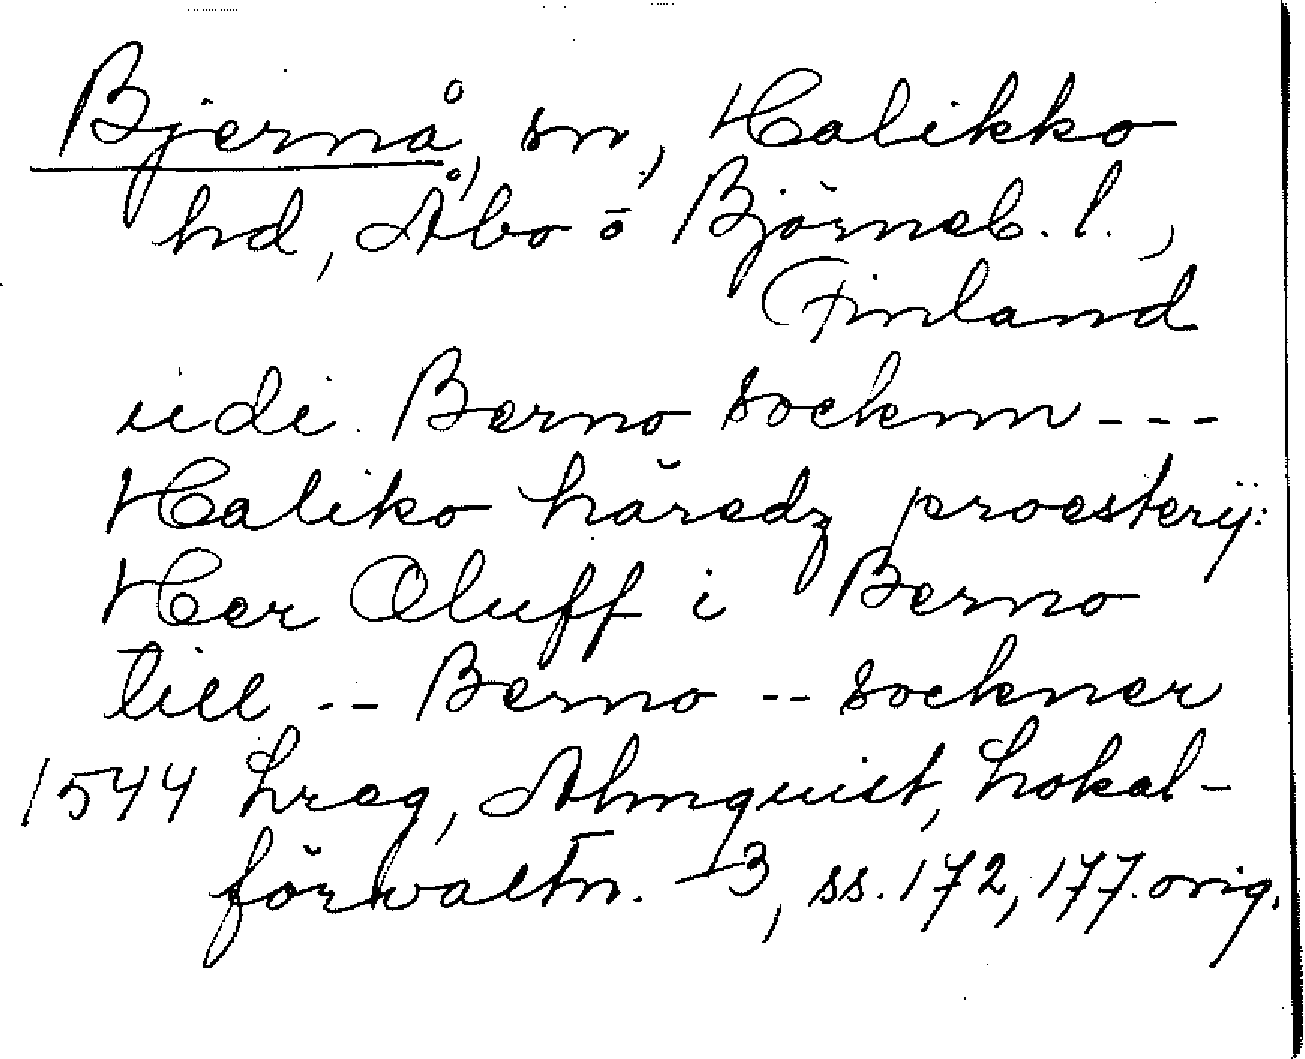 Bjernå, sn, Halikko
hd, Åbo o Björneb. l.,
Finland
udi Berno socknn ---
Haliko häredz proesterij:
Her Oluff i Berno
till -- Berno -- sockner
1544 Lreg, Almquist, Lokal-
förvaltn. 3, ss. 172, 177. orig.